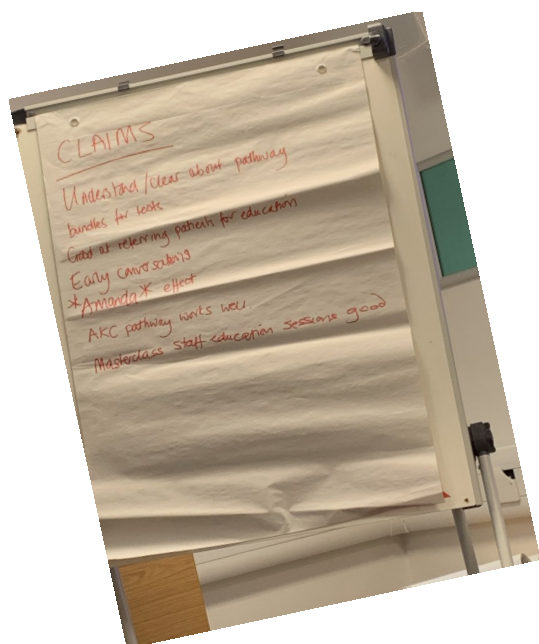 CLAIMS
Understand/clear about pathway
bundles for
Good at referring patients for education
Early conversations
*Amanda* effect
AKC pathway works well
Masterclass staff education sessions good